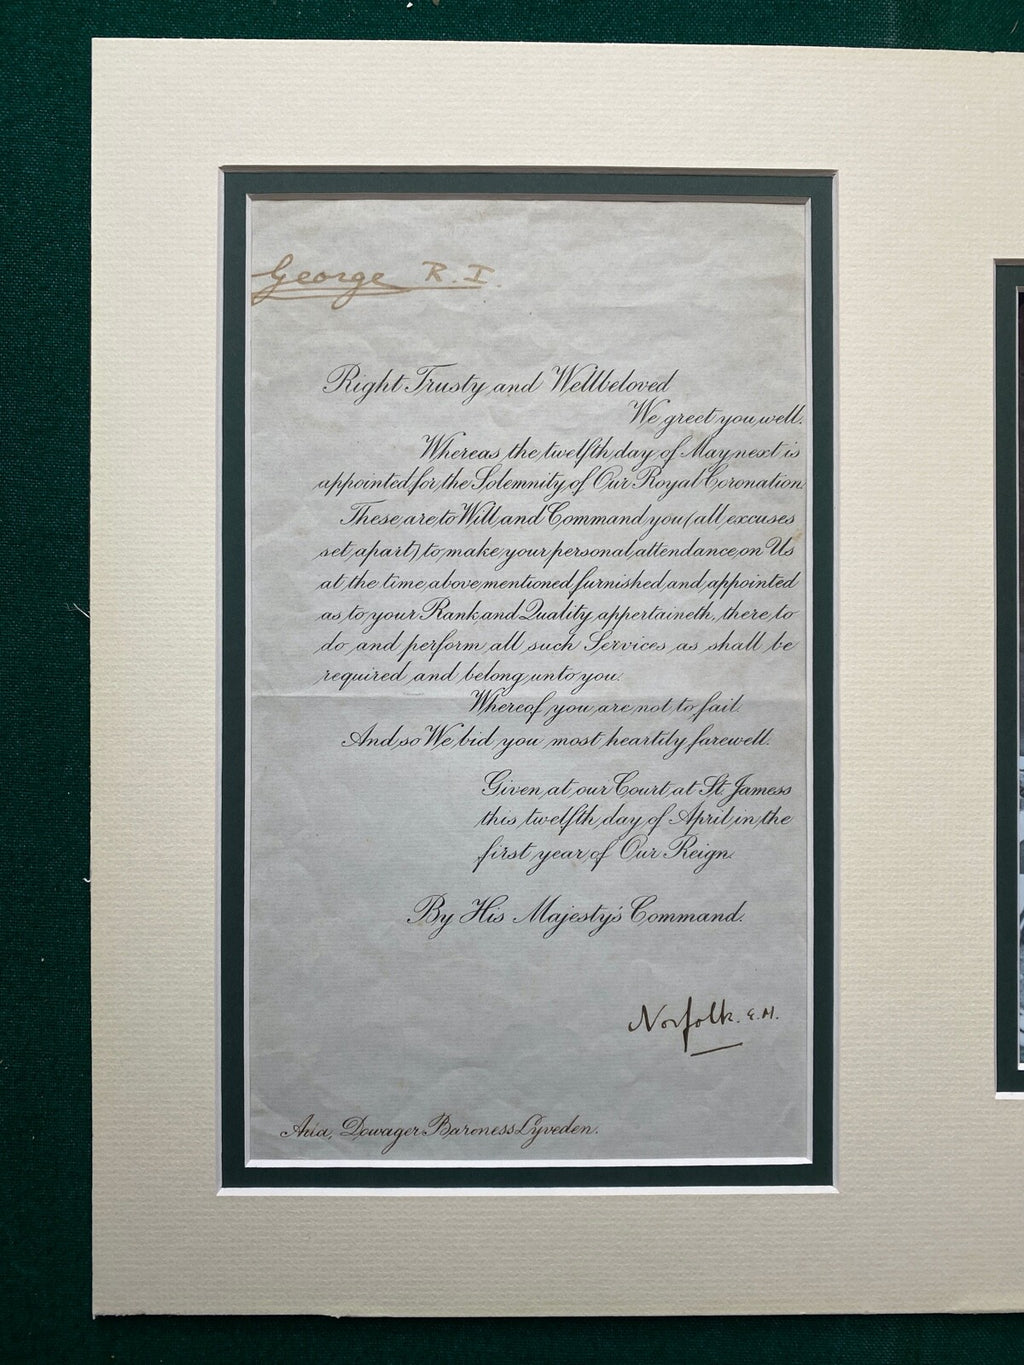 George R.I.
Right Trusty and Wellbeloved
We greet you well.
Whereas the twelfth day of May next is
appointed for the Solemnity of Our Royal Coronation
These are to Will and Command you (all excuses
set apart) to make your personal attendance on Us
at the time above mentioned furnished and appointed
as to your Rank and Quality appertaineth, there to
do and perform all such Services as shall be
required and belong unto you.
Whereof you are not to fail.
And so We bid you most heartily farewell.
Given at our Court at St. Jamess
this twelfth day of April in the
first year of Our Reign.
By His Majesty's Command.
Norfolk. E.M.
Dowager Baroness Lyveden.